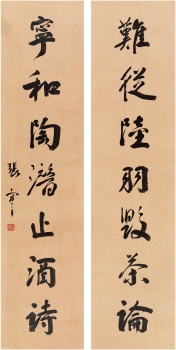 難從陸羽毀茶論
寧和陶潛止酒詩
張寒月